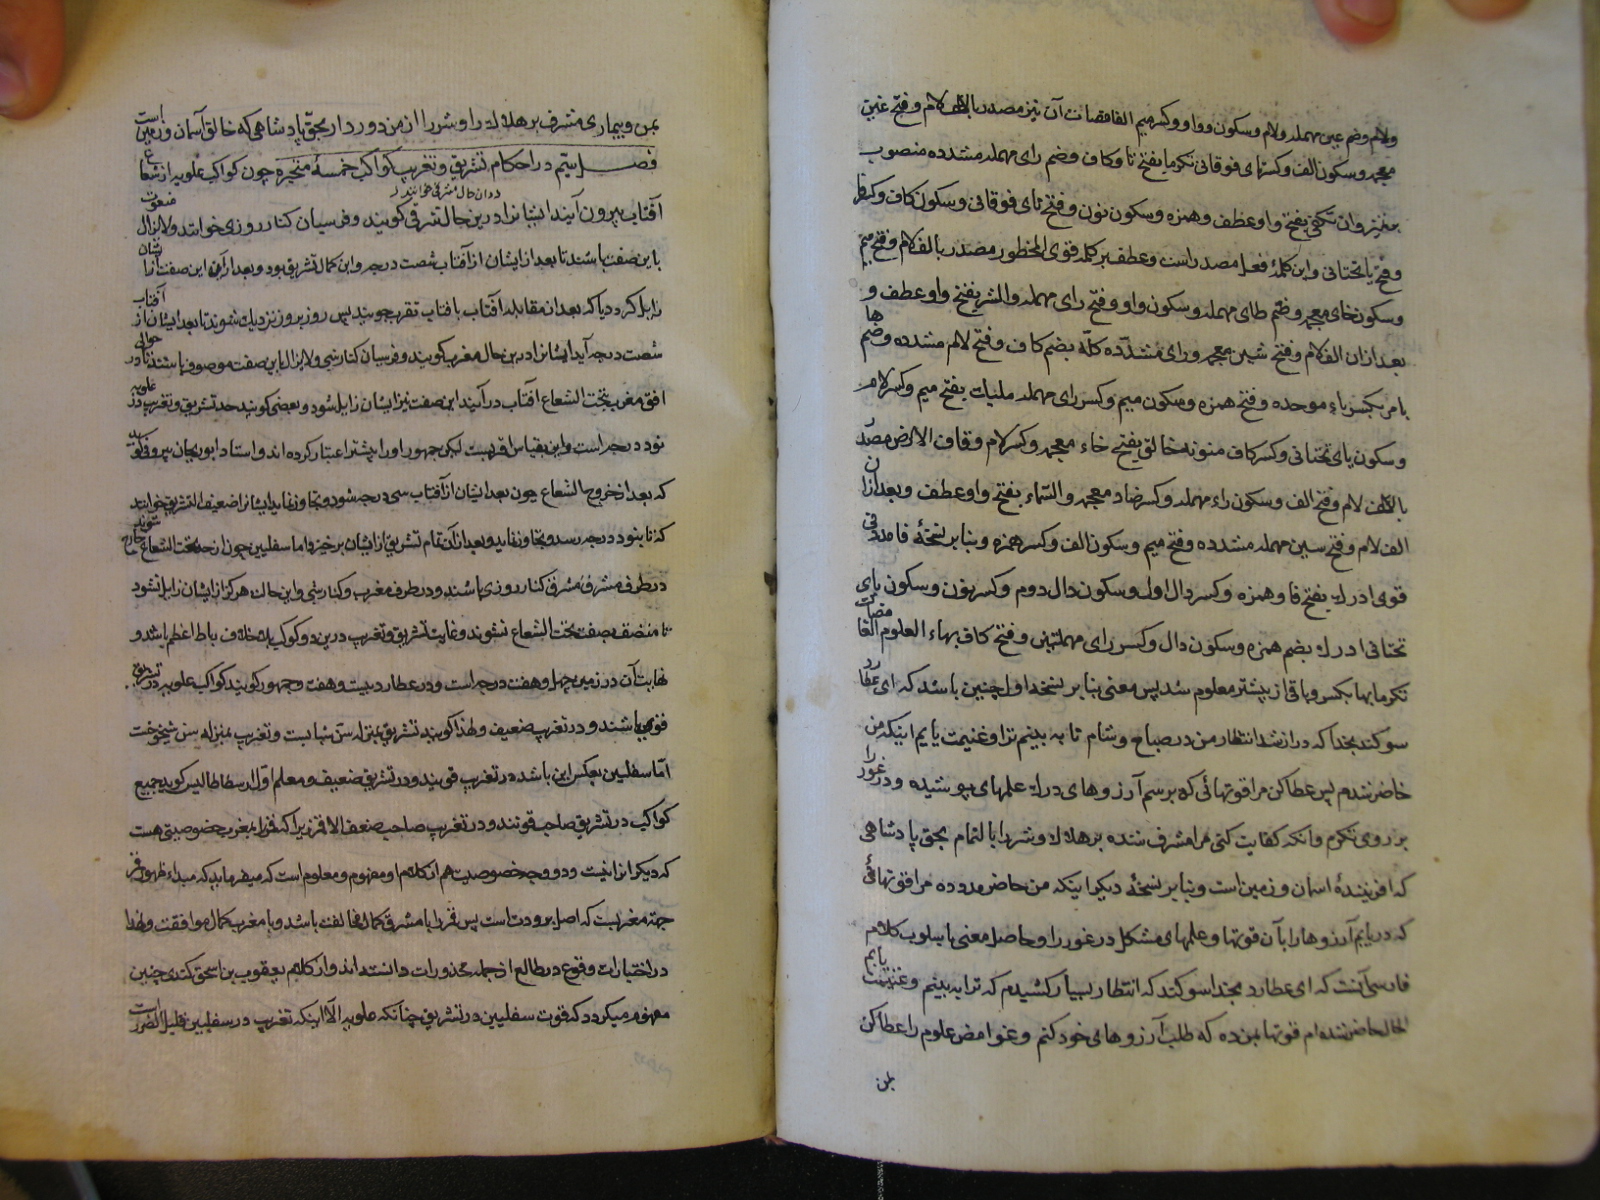 ولام وضم عین مهمله ولام وسکون وواو وکسر میم الغامضات آن نیز مصدر بالف لام وفتح غین
معجمه وسکون الف وکسر تای فوقانی تکرما بفتح تا وکاف وضم رای مهمله مشدده منصوب
وفتح یا تحتانی واین کلمهٔ فعل مصدر است وعطف بر کلمه قوی المحظور مصدر بالف لام وفتح میم
وسکون خای معجمه وضم طای مهمله وسکون واو وفتح رای مهمله والشر بفتح واو عطف و
بعد ازان الف لام وفتح شین معجمه ورای مشدده کلّه بضم کاف وفتح لام مشدده وضم ها
بامر بکسر باء موحده وفتح همزه وسکون میم وکسر رای مهمله ملیک بفتح میم وکسر لام
وسکون یای تحتانی وکسر کاف منونه خالق بفتح خاء معجمه وکسر لام وقاف الارض مصدر
بالف لام وفتح الف وسکون راء مهمله وکسر ضاد معجمه والسّماء بفتح واو عطف وبعد ازان
الف لام وفتح سین مهمله مشدده وفتح میم وسکون الف وکسر همزه وبنا بر نسخهٔ فامددنی
قوی ادرك بفتح فا وهمزه وکسر دال اول وسکون دال دوم وکسر نون وسکون یای
تحتانی ادرك بضم همزه وسکون دال وکسر رای مهملتین وفتح کاف بهاء العلوم الغامضات
تکرما بها بکسر وباقی از پیشتر معلوم شد پس معنی بنا بر نسخه اول چنین باشد که ای عطارد
سوکند بخدا که دراز شد انتظار من در صباح وشام تا به بینم ترا وغنیمت یابم اینکه من
حاضر شدم پس عطا کن مرا قوتهائی که برسم آرزوهای درك علمهای پوشیده ودر غور را
بر روی تکرم وانکه کفایت کنی مرا مشرف شده بر هلاك وشر را بالتمام بحق پادشاهی
که افرینندهٔ اسمان وزمین است وبنا بر نسخهٔ دیکر اینکه من حاضرم مدد ده مرا قوتهائی
که دریابم آرزوها را بآن قوتها وعلمهای مشکل در غور را وحاصل معنی باسلوب کلام
فارسی آنست که ای عطارد بخدا سوکند که انتظار بسیار کشیدم که ترا به بینم وغنیمت یابم
الحال حاضر شده ام قوتها بمن ده که طلب آرزوهای خود کنم وغوامض علوم را عطا کن
بمن
بمن وبیماری مشرف بر هلاك دراو شر را از من دور دار بحق پادشاهی که خالق آسمان وزمین است
فصل بیتم در احکام تشریق وتغریب کواکب خمسهٔ متحیره چون کواکب علویه از شعاع
آفتاب بیرون آیند ایشانرا درین حال تشرقی کویند وفرسیان کنار روزی خوانند ولا یزال
باین صفت باشند تا بعد از ایشان از آفتاب شصت درجه واین کمال تشریق بود وبعد ازین این صفت از ایشان
زایل کردد یا که بعد از مقابله آفتاب بافتاب تقرب جویند پس روز بروز نزدیك شوند تا بعد ایشان از آفتاب
شصت درجه آید ایشانرا درین حال مغرب کویند وفرسیان کنار شبی ولا یزال باین صفت موصوف باشند تا در حوالی
افق مغرب تحت الشعاع آفتاب درآیند این صفت نیز ایشان زایل شود وبعضی کویند حد تشریق وتغریب در علویه
نود درجه است واین بقیاس اقربست لیکن جمهور اورا بیشتر اعتبار کرده اند واستاد ابوریحان بیرونی کوید
که بعد از خروج الشعاع چون بعد ایشان از آفتاب سی درجه شود وتجاوز نماید ایشانرا ضعیف التشریق خوانند
که تا بنود درجه رسد وتجاوز نماید وبعد ازان نام تشریق از ایشان برخیزد اما سفلیین چون از حد تحت الشعاع خارج شوند
در طرف مشرق مشرق کنار روزی باشند ودر طرف مغرب وکنار شبی واین حالت هرکز از ایشان زایل نشود
تا منصف بصفت تحت الشعاع نشوند وغایت تشریق وتغریب درین دو کوکب بلا خلاف رباط اعظم باشد و
نهایت آن در زهره چهل وهفت درجه است ودر عطارد بیست وهفت وجمهور کویند کواکب علویه در تشریق
قوی باشند ودر تغریب ضعیف ولهذا کویند تشریق بمنزله سن شبابست وتغریب بمنزله سن شیخوخت
امّا سفلیین بعکس این باشد در تغریب قویند ودر تشریق ضعیف ومعلم اوّل ارسطاطالیس کوید جمیع
کواکب در تشریق صاحب قوتند ودر تغریب صاحب ضعف الا قمر زیرا که قمر را بمغرب خصوصیتی هست
که دیکر انرا نیست ووجه خصوصیت هم از کلام او مفهوم ومعلوم است که میفرماید که مبداء ظهور قمر
جهة مغربست که اصل برودت است پس قمر را با مشرق کمال مخالفت باشد وبا مغرب کمال موافقت ولهذا
در اختیارات وقوع در طالع از جمله محذورات دانسته اند واز کلام یعقوب بن اسحق کندی چنین
مفهوم میکردد که قوت سفلیین در تشریق چنانکه علویه الا اینکه تغریب در سفلیین قلیل الضرر است